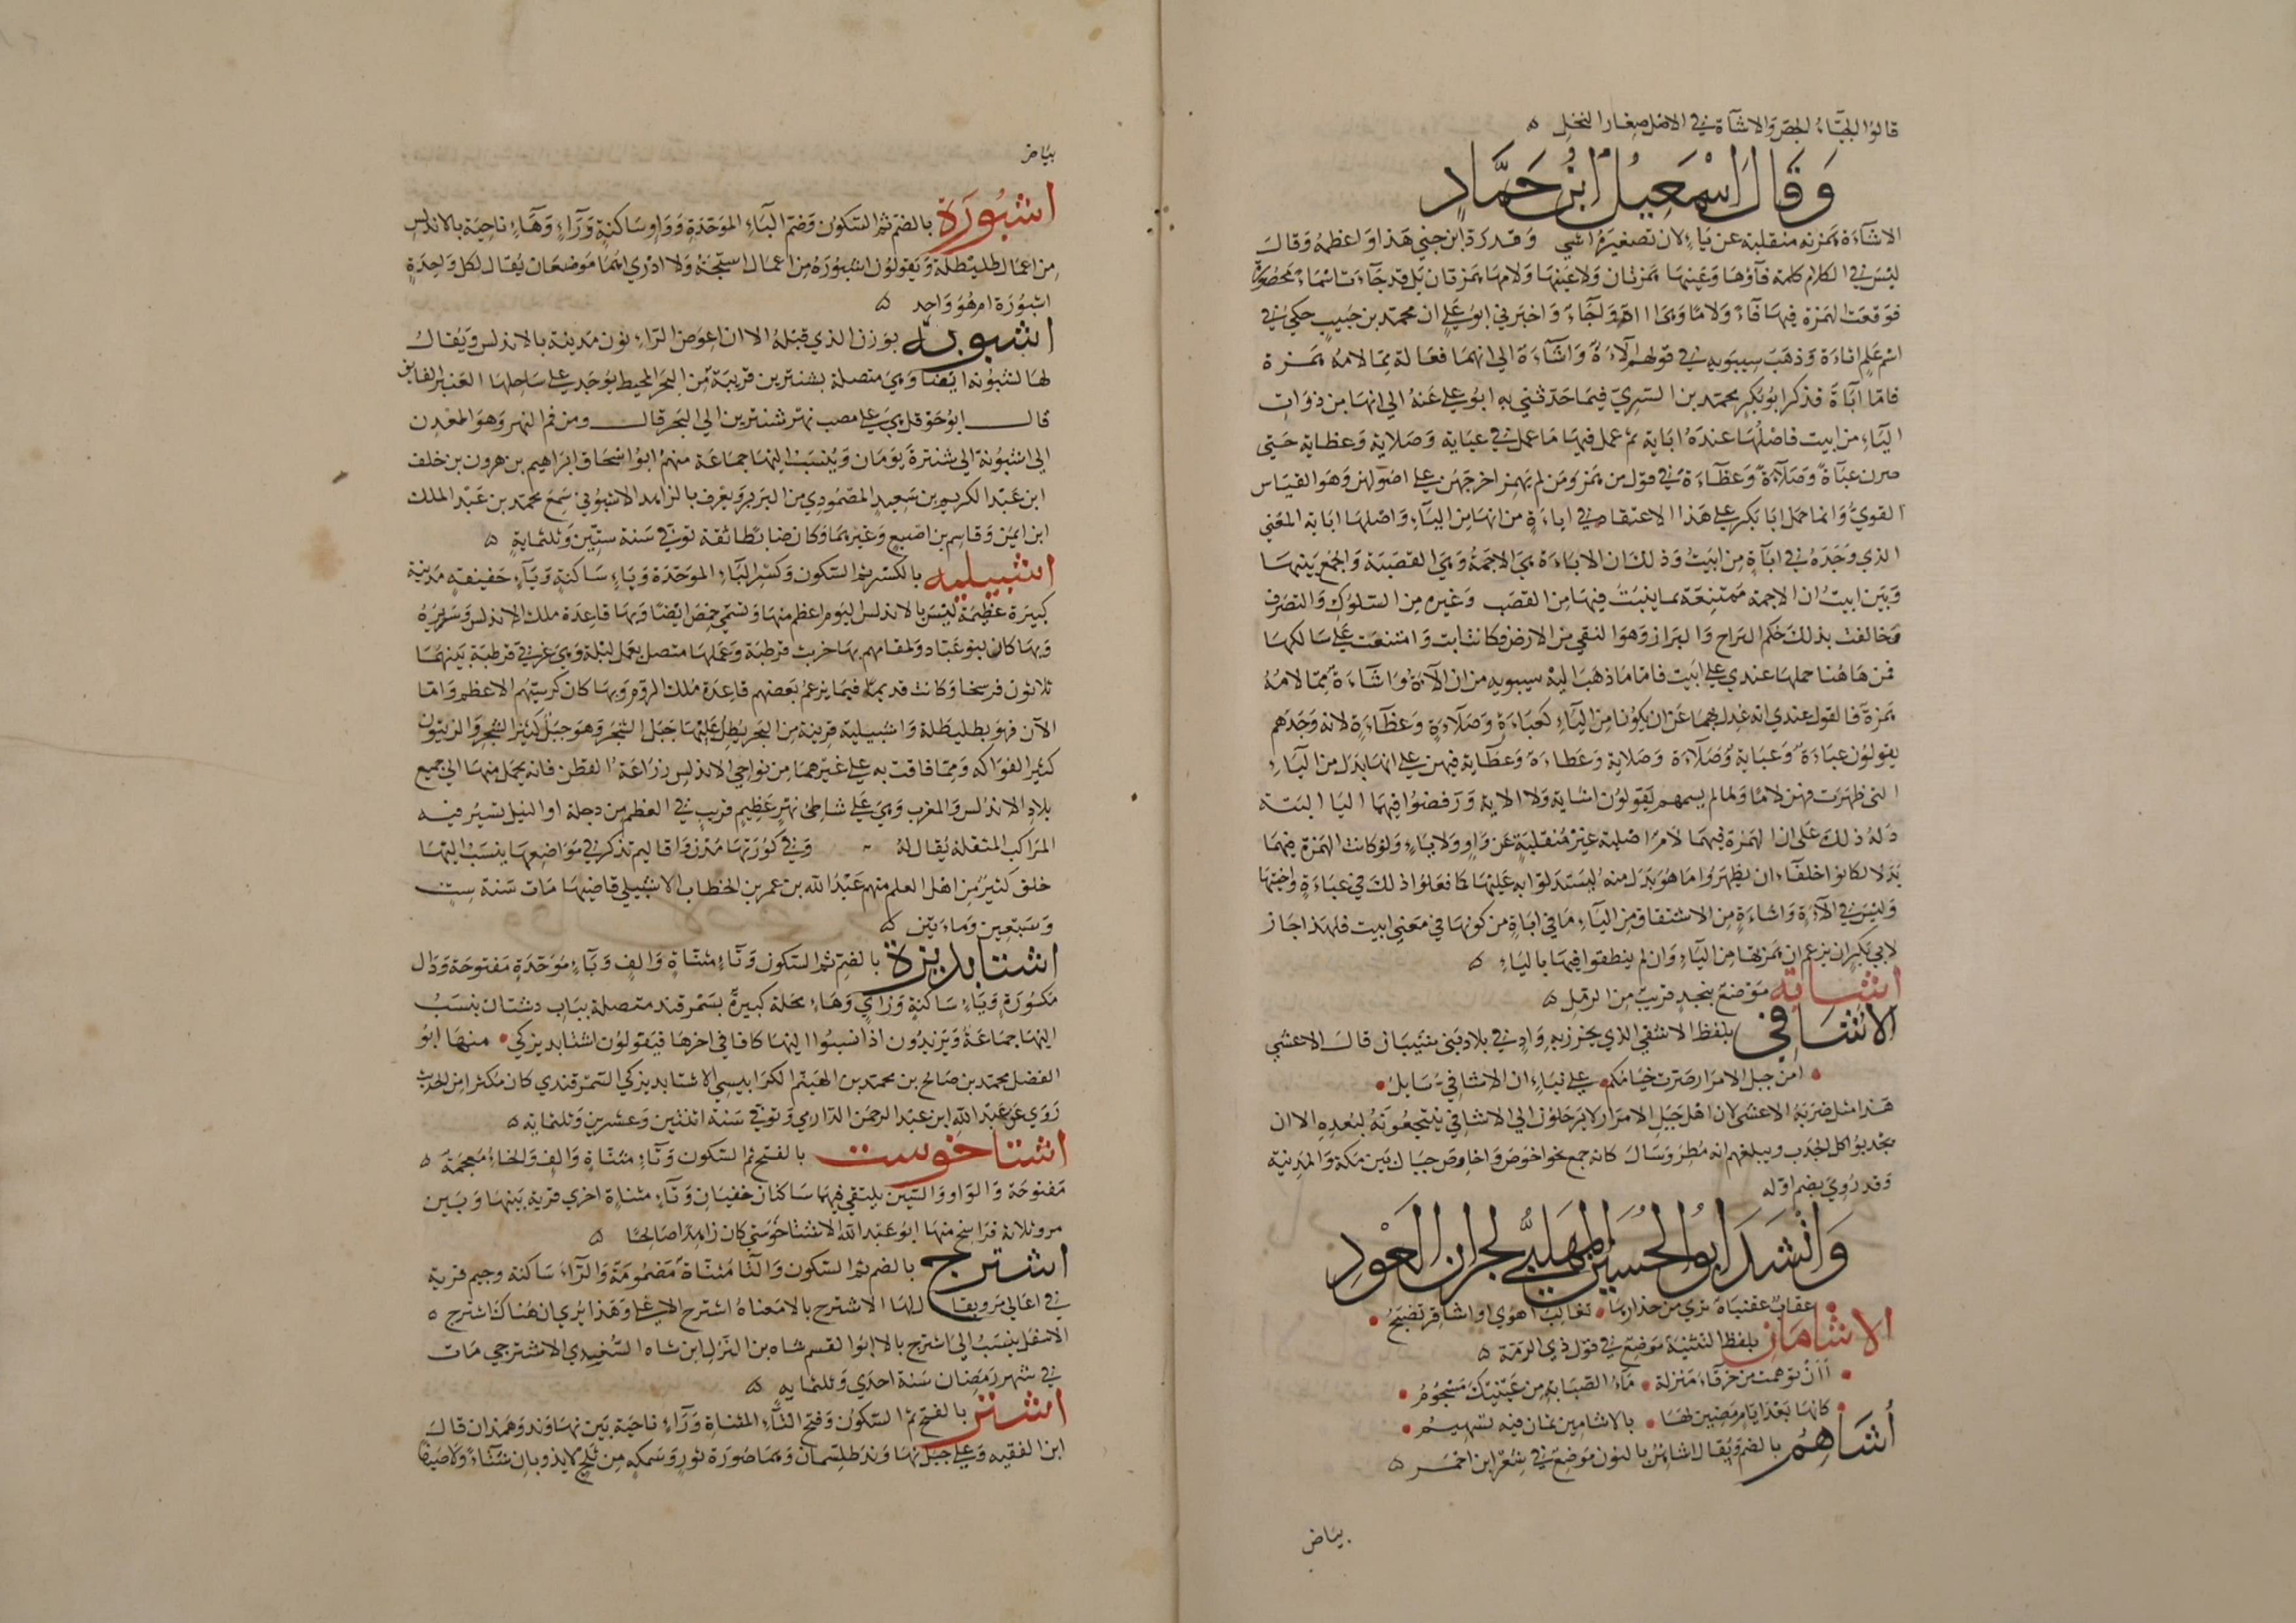 قالوا الجباء الحصر والاشآة في الاصل صغار النخل ۵
وَقَالَ اسْمَعِيلُ ابْنُ حَمَّادٍ
الاشآءة همزته منقلبة عن ياء لان تصغيرها اشي وقد رد ابن جني هذا واعظمه وقال
ليس في الكلام كلمة فآؤها وعينها همزتان ولا عينها ولامها همزتان بل قد جآءت اسماء محصورة
فوقعت الهمزة فيها فآء ولاما وهي اآة واجآء واخبرني ابو علي ان محمد بن حبيب حكي في
اسم علم اثاءة وذهب سيبويه في قولهم الآءة واشآءة الي انهما فعالة مما لامه همزة
فاما ابآة فذكر ابو بكر محمد بن السري فيما حدثني به ابو علي عنه الي انها من ذوات
اليآء من ابيت فاصلها عنده اباية ثم عمل فيها ما عمل في عباية وصلاية وعظاية حتي
صرن عبآة وصلآة وعظآءة في قول من همز ومن لم يهمز اخرجهن علي اصولهن وهو القياس
القوي وانما حمل ابا بكر علي هذا الاعتقاد في اباءة من انها من اليآء واصلها اباية المعني
الذي وجده في ابآة من ابيت وذلك ان الاباءة هي الاجمة وهي القصبة والجمع بينها
وبين ابيت ان الاجمة ممتنعة بما ينبت فيها من القصب وغيره من السلوك والتصرف
وخالفت بذلك حكم البراح والبراز وهو النقي من الارض فكانها ابت وامتنعت علي سالكها
فمن هاهنا حملها عندي علي ابيت فاما ما ذهب اليه سيبويه من ان الآءة واشآءة مما لامه
همزة فالقول عندي انه عدل بهما عن ان يكونا من اليآء كعباءة وصلاءة وعظآءة لانه وجدهم
يقولون عباءة وعباية وصلآءة وصلاية وعظاءة وعظاية فيهن علي انها بدل من اليآء
التي ظهرت فيهن لاما ولما لم يسمعهم يقولون اشاية ولا الاية ورفضوا فيهما اليا البتة
دله ذلك علي ان الهمزة فيهما لام اصلية غير منقلبة عن واو ولا ياء ولو كانت الهمزة فيهما
بدلا لكانوا خلقآء ان يظهروا ما هو بدل منه ليستدلوا به عليها كما فعلوا ذلك في عباءة واختها
وليس في الآءة واشاءة من الاشتقاق من اليآء ما في اباة من كونها في معني ابيت فلهذا جاز
لابي بكر ان يزعم ان همزتها من اليآء وان لم ينطقوا فيها باليآء ۵
اشابة موضع بنجد قريب من الرمل ۵
الاشافي بلفظ الاشفي الذي يخرز به واد في بلاد بني شيبان قال الاعشي
امن جبل الامرار صرت خيامكم علي نباء ان الاشافي سايل
هذا مثل ضربه الاعشى لان اهل جبل الامرار لا يرحلون الي الاشافي ينتجعونه لبعده الا ان
يجدبوا كل الجدب ويبلغهم انه مطر وسال كانه جمع نحو احوص واحاوص جبال بين مكة والمدينة
وقد روي بضم اوله
وَانْشَدَ ابُوالحُسَينِ المُهَلَّبِيُّ لجران العَوْدِ
عقاب عقنباة تري من حذارها ثعالب اهوي او اشاقر تضبح
الاشامان بلفظ التثنية موضع في قول ذي الرمة ۵
أأن توهمت من خرقآء منزلة مآء الصبابة من عينيك مسجوم
كانها بعد ايام مضين لها بالاشامين يمان فيه تسهيم
أشاهم بالضم ويقال اشاهن بالنون موضع في شعر ابن احمر ۵
بياض
بياض
اشبورة بالضم ثم السكون وضم البآء الموحدة وواو ساكنة ورآء وهآء ناحية بالاندلس
من اعمال طليطلة ويقولون اشبورة من اعمال استجة ولا ادري اهما موضعان يقال لكل واحدة
اشبورة ام هو واحد ۵
اشبونة بوزن الذي قبله الا ان عوض الرآء نون مدينة بالاندلس ويقال
لها لشبونة ايضا وهي متصلة بشنترين قريبة من البحر المحيط يوجد علي ساحلها العنبر الفايق
قال ابو حوقل هي علي مصب نهر شنترين الي البحر قال ومن فم النهر وهو المعدن
الي اشبونة الي شنترة يومان وينسب اليها جماعة منهم ابو اسحاق ابراهيم بن هرون بن خلف
ابن عبد الكريم بن سعيد المصمودي من البربر ويعرف بالزاهد الاشبوني سمع محمد بن عبد الملك
ابن ايمن وقاسم بن اصبع وغيرهما وكان ضابطا ثقة توفي سنة ستين وثلثماية ۵
اشبيلية بالكسر ثم السكون وكسر البآء الموحدة ويآء ساكنة ويآء خفيفة مدينة
كبيرة عظيمة ليس بالاندلس اليوم اعظم منها وتسمي حمص ايضا وبها قاعدة ملك الاندلس وسريره
وبها كان بنو عباد ولمقامهم بها خربت قرطبة وعملها متصل بعمل لبلة وهي غربي قرطبة بينهما
ثلاثون فرسخا وكانت قديما فيما يزعم بعضهم قاعدة ملك الروم وبها كان كرسيهم الاعظم واما
الآن فهو بطليطلة واشبيلية قريبة من البحر يطل عليها جبل الشرف وهو جبل كثير الشجر والزيتون
كثير الفواكه ومما فاقت به علي غيرهما من نواحي الاندلس زراعة القطن فانه يحمل منها الي جميع
بلاد الاندلس والمغرب وهي علي شاطئ نهر عظيم قريب في العظم من دجلة او النيل تسير فيه
المراكب المثقلة يقال له وفي كورتها مدن واقاليم تذكر في مواضعها ينسب اليها
خلق كثير من اهل العلم منهم عبد الله بن عمر بن الخطاب الاشبيلي قاضيها مات سنة ست
وسبعين وماءتين ۵
اشتابديزة بالضم ثم السكون وتآء مثناة والف وبآء موحدة مفتوحة ودال
مكسورة ويآء ساكنة وزاي وهآء محلة كبيرة بسمرقند متصلة بباب دستان ينسب
اليها جماعة ويزيدون اذا نسبوا اليها كافا في اخرها فيقولون اشتابديزكي منها ابو
الفضل محمد بن صالح بن محمد بن الهيثم الكرابيسي الاشتابديزكي السمرقندي كان مكثرا من الحديث
روي عن عبد الله ابن عبد الرحمن الدارمي وتوفي سنة اثنتين وعشرين وثلثماية ۵
اشتاخوست بالفتح ثم السكون وتآء مثناة والف والخآء معجمة ۵
مفتوحة والواو والسين يلتقي فيها ساكنان خفيان وتآء مثناة اخري قرية بينها وبين
مرو ثلاثة فراسخ منها ابو عبد الله الاشتاخوستي كان زاهدا صالحا ۵
اشترج بالضم ثم السكون والتا مثناة مضمومة والرآء ساكنة وجيم قرية
في اعالي مرو يقال لها الاشترج بالا معناه اشترج الاعلي وهذا يري ان هناك اشترج ۵
الاسفل ينسب الي اشترج بالا ابو القسم شاه بن النزال بن شاه السغدي الاشترجي مات
في شهر رمضان سنة احدي وثلثماية ۵
اشتر بالفتح ثم السكون وفتح التآء المثناة ورآء ناحية بين نهاوند وهمدان قال
ابن الفقيه وعلي جبل نهاوند طلسمان وهما صورة ثور وسمكة من ثلج لا يذوبان شتآء ولا صيفا